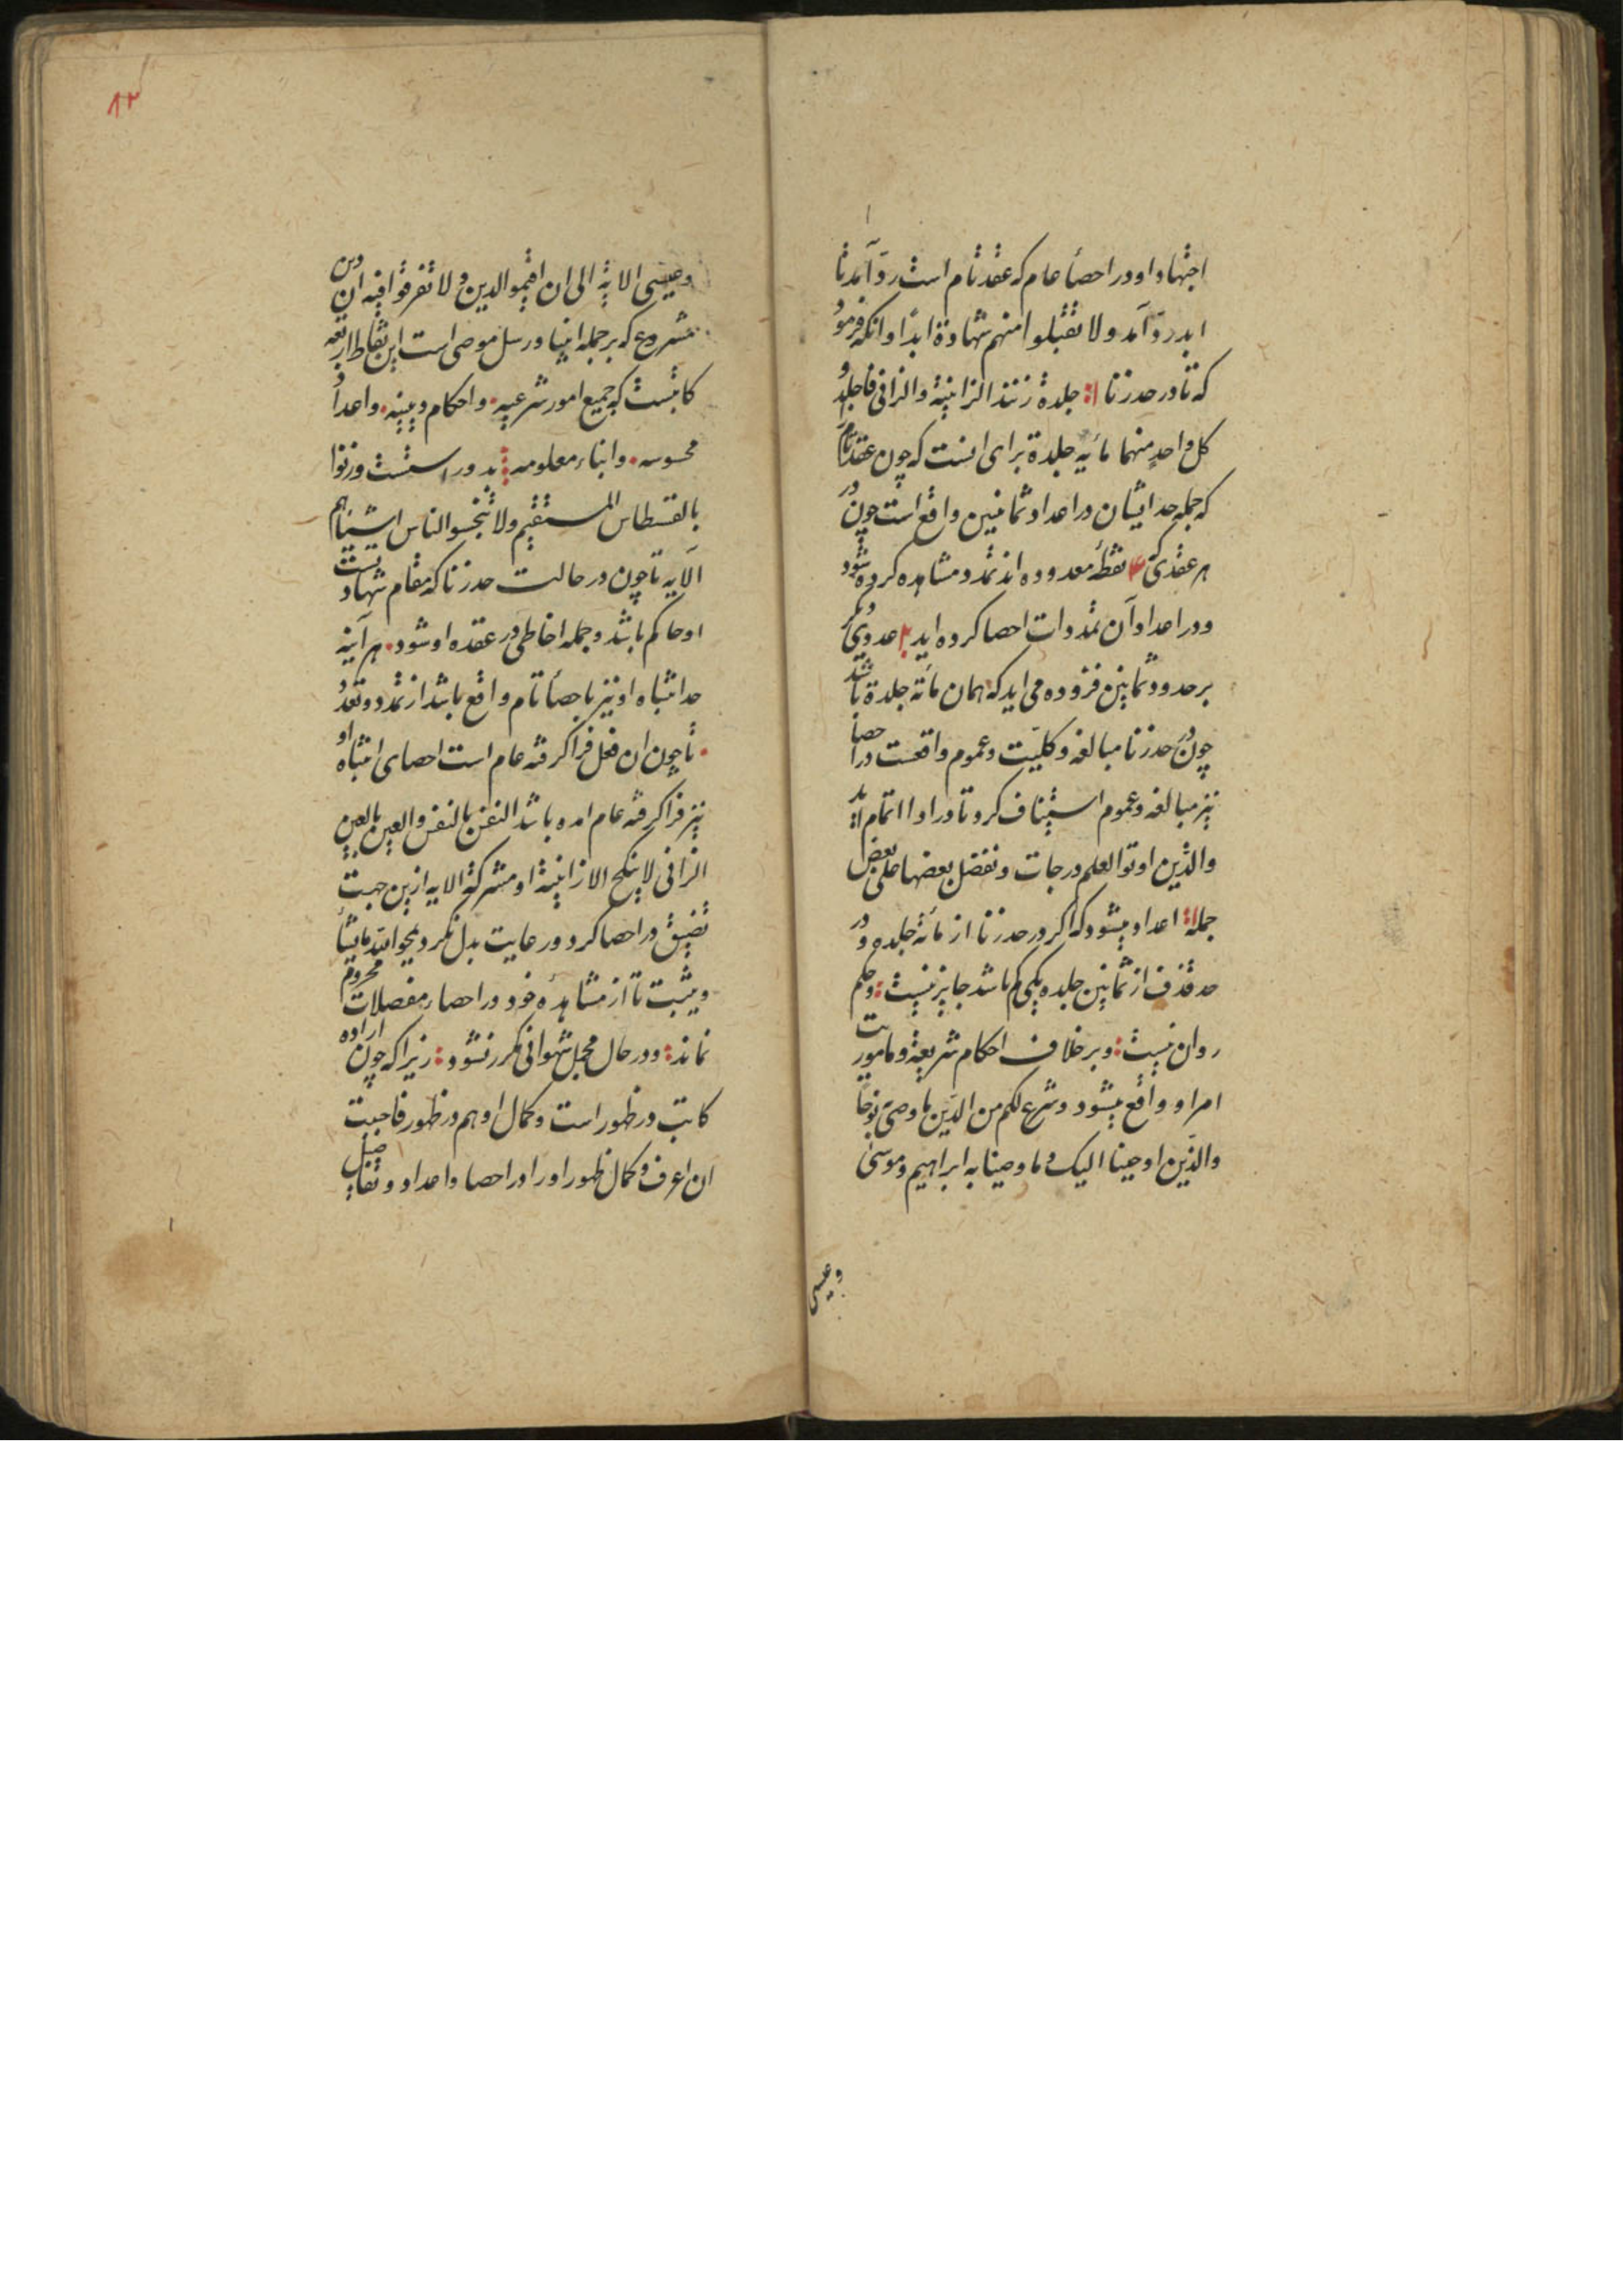 اجتهاد او در احصأ عام که عقد تام است ردّ آمد تا
ابد ردّ آمد ولا تقبلوا منهم شهادة ابدًا و انکه فرمود
که تا در حد زنا جلدة زنند الزانیة والزانی فاجلدوا
کل واحدٍ منهما مأیه جلدة برای انست که چون عقد تام
که جمله حد ایشان در اعداد ثمانین واقع است چون در
هر عقدی نقطهٔ معدوده اند تمدد مشاهده کرده شود
و در اعداد آن تمددات احصا کرده اید عدد دیگر
بر حدود ثمانین فزوده می اید که همان مأته جلدة باشد
چون در حد زنا مبالغه و کلیّت و عموم واقعست در احصا
نیز مبالغه و عموم استیناف کرد تا در ادا اتمام اید
والذین اوتوا العلم درجات و نفضل بعضها علی بعض
جمله اعداد میشود که اکر در حد زنا از مأته جلده و در
حد قذف از ثمانین جلده یکی کم باشد جایز نیست و حکم
روان نیست و بر خلاف احکام شریعة و ماموریت
امر او واقع میشود و شرع لکم من الدّین ما وصیّ نوحًا
والذّین اوحینا الیک و ما وصینا به ابراهیم و موسی
وعیسی
۸۲
وعیسی الایة الی ان اقیمو الدین و لا تفرقوا فیه ان دین
مشروع که بر جمله انبیا و رسل موصی است این نقاط اربعه
کاتبست که جمیع امور شرعیه و احکام دینیه و اعداد
محسوسه و انباء معلومه بدو راستست وزنوا
بالقسطاس المستقیم ولا تبخسوا الناس اشیاءهم
الآیه تا چون در حالت حد زنا که مقام شهادتیست
او حاکم باشد و جمله اخاطی در عقده او شود هر آینه
حد انتباه او نیز باحصأ تام واقع باشد از تمدد و تعدد
تا چون ان فعل فرا کرفته عام است احصای انتباه او
نیز فرا کرفته عام امده باشد النفس بالنفس والعین بالعین
الزانی لا ینکح الا زانیة او مشرکة الایه ازین جهت
تضیق در احصا کرد و رعایت بدل نکرد یمحوا الله ما یشأ
و یثبت تا از مشاهدهٔ خود در احصا مفصلات محروم
نماند و در حال مجمل شهوانی مکرر نشود زیرا که چون اراده
کاتب در ظهور است و کمال او هم در ظهور فاحببت
ان اعرف و کمال ظهور او را در احصا و اعداد و تفاصیل